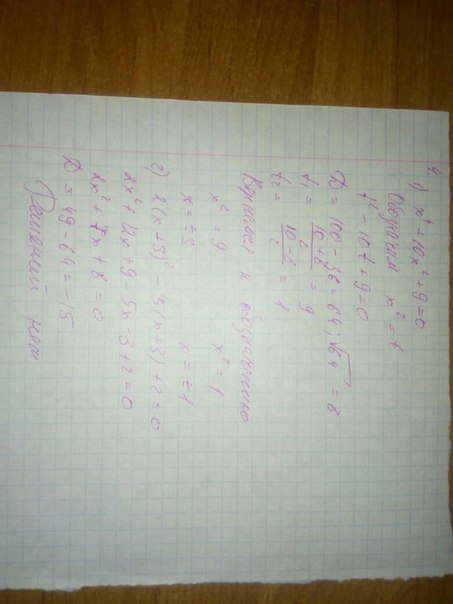 4 1) x⁴ - 10x² + 9 = 0
Обозначим x² = t
t² - 10t + 9 = 0
D = 100 - 36 = 64; √64 = 8
t₁ = (10 + 8)/2 = 9
t₂ = (10 - 8)/2 = 1
Вернемся к обозначению
x² = 9 x² = 1
x = ±3 x = ±1
2) 2(x + 3)² - 5(x + 3) + 2 = 0
2x² + 12x + 9 - 5x - 3 + 2 = 0
2x² + 7x + 8 = 0
D = 49 - 64 = -15
Решений нет